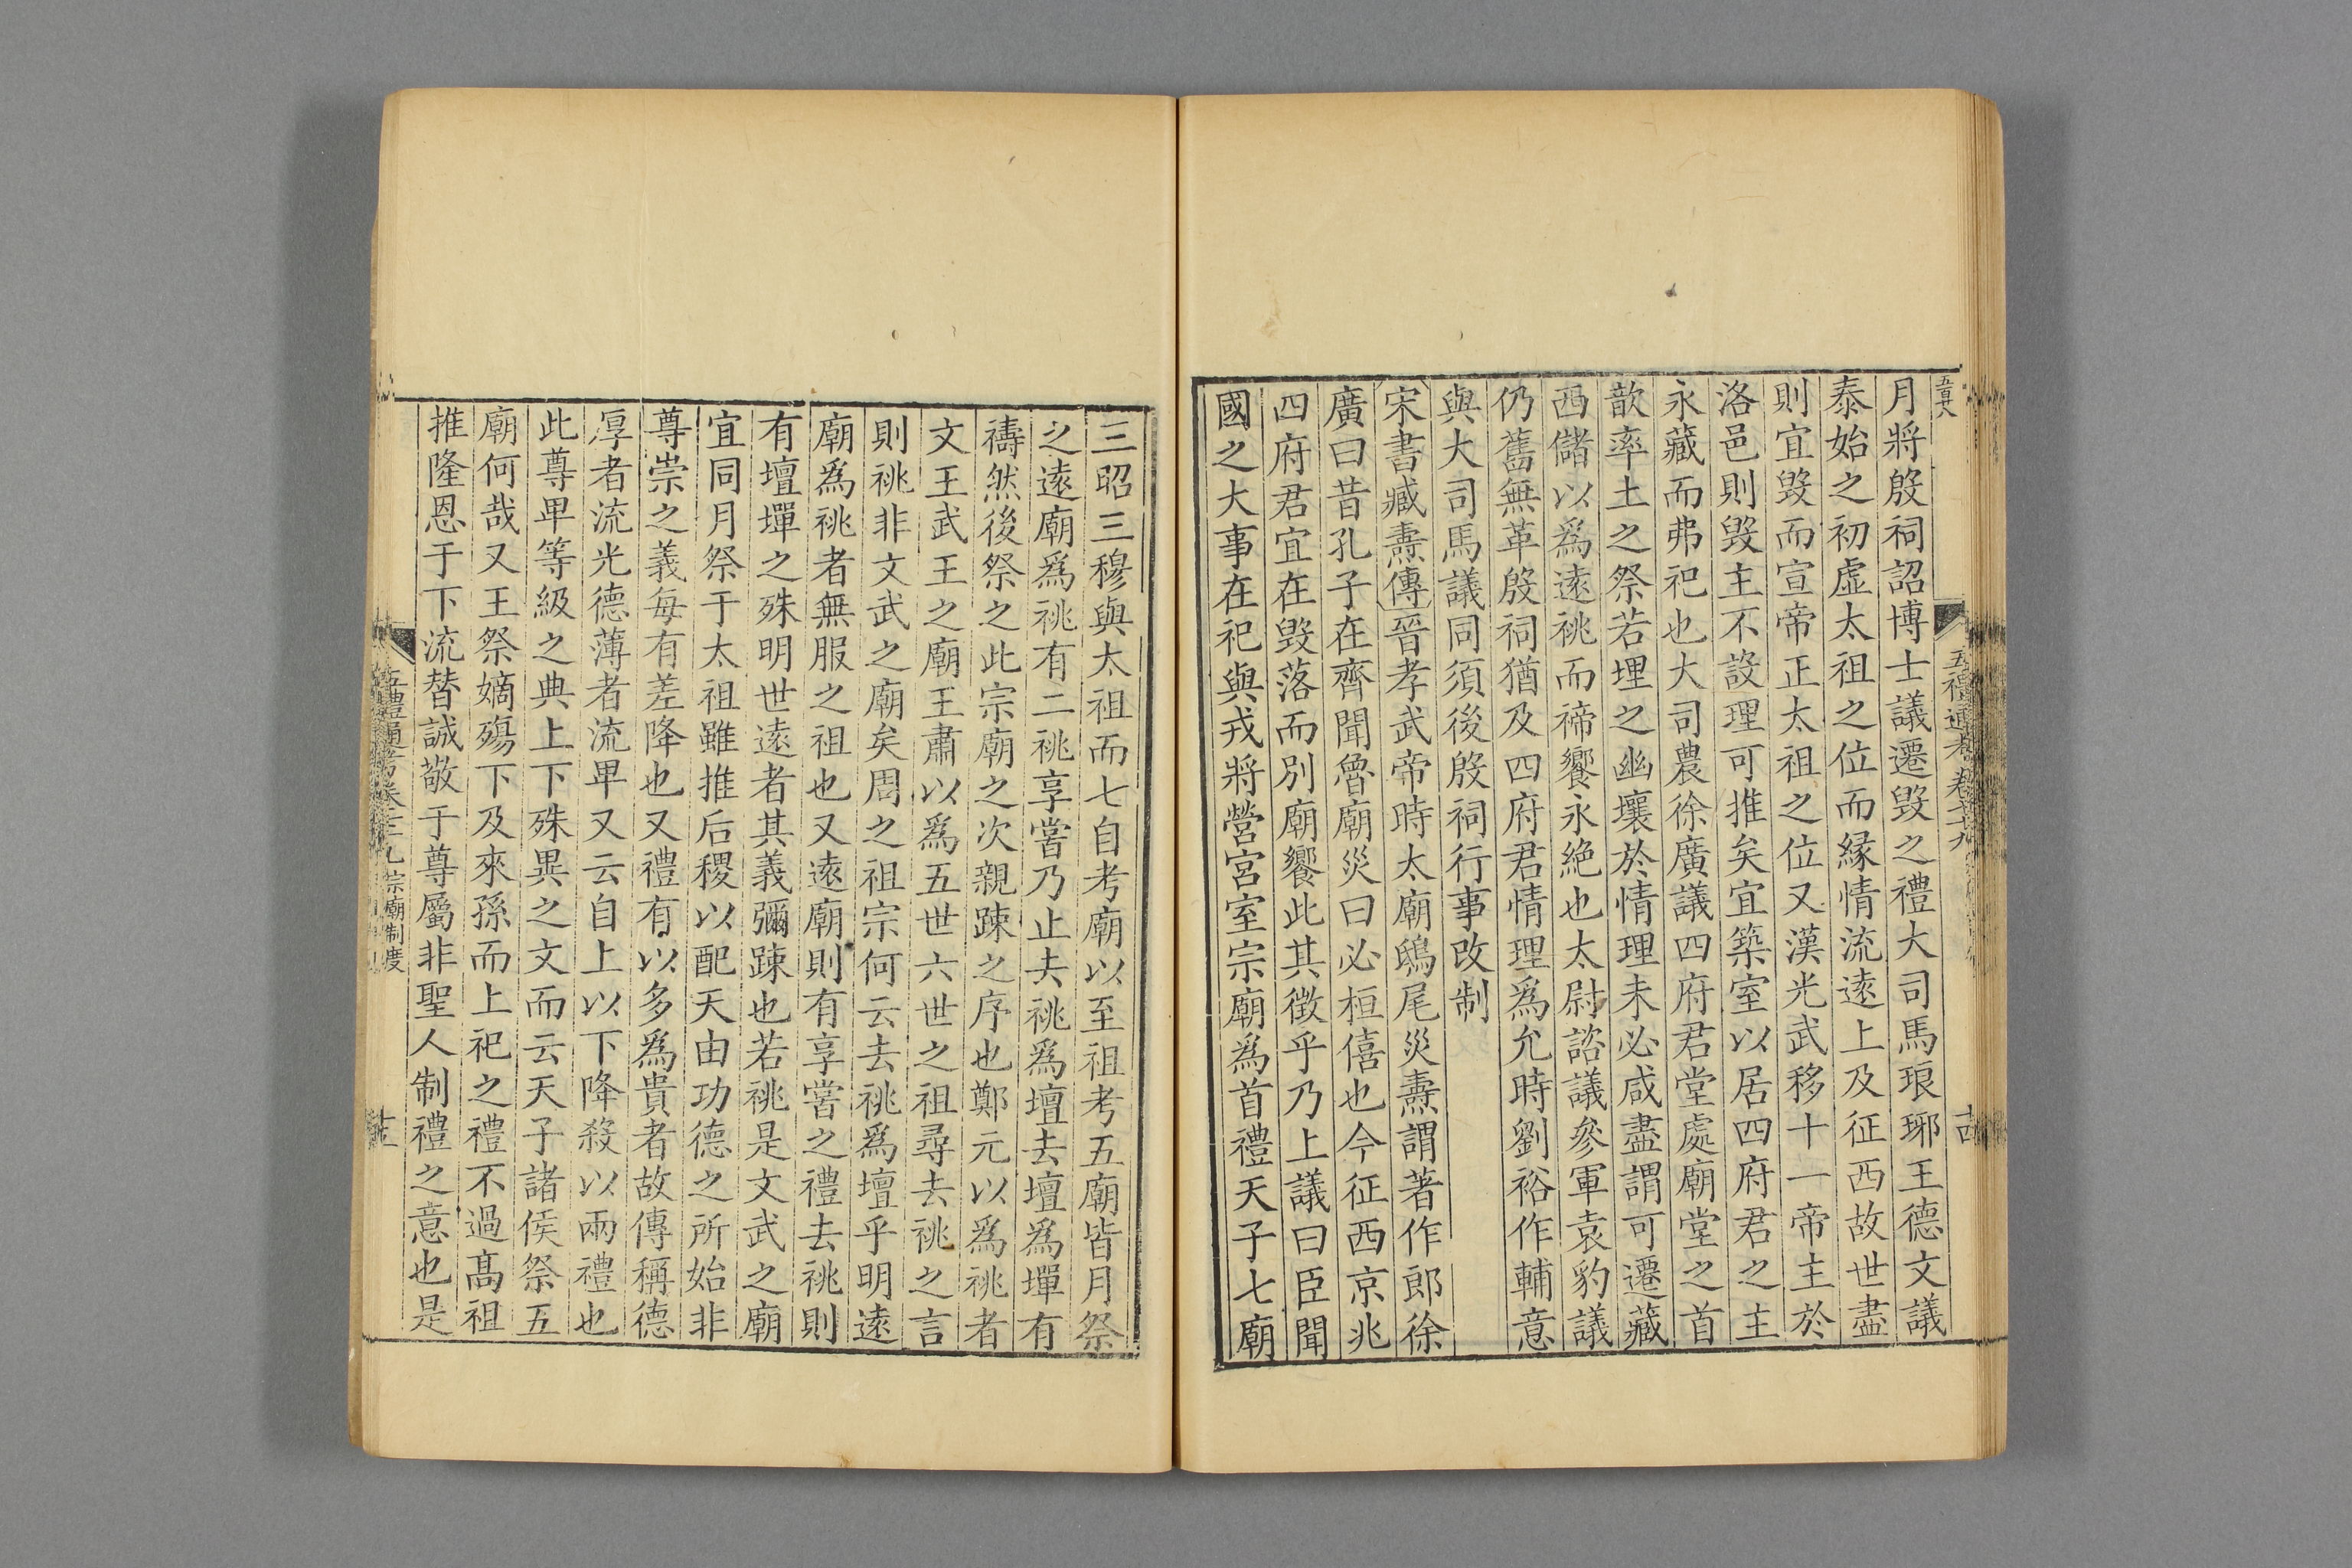 五禮通考卷七十九
十四
月將殷祠詔博士議遷毀之禮大司馬琅琊王德文議
泰始之初虛太祖之位而緣情流遠上及征西故世盡
則宜毀而宣帝正太祖之位又漢光武移十一帝主於
洛邑則毀主不設理可推矣宜築室以居四府君之主
永藏而弗祀也大司農徐廣議四府君堂處廟堂之首
歆率土之祭若埋之幽壤於情理未必咸盡謂可遷藏
西儲以爲遠祧而禘饗永絕也太尉諮議參軍袁豹議
仍舊無革殷祠猶及四府君情理爲允時劉裕作輔意
與大司馬議同須後殷祠行事改制
宋書臧燾傳晉孝武帝時太廟鴟尾災燾謂著作郎徐
廣曰昔孔子在齊聞魯廟災曰必桓僖也今征西京兆
四府君宜在毀落而別廟饗此其徵乎乃上議曰臣聞
國之大事在祀與戎將營宮室宗廟爲首禮天子七廟
三昭三穆與太祖而七自考廟以至祖考五廟皆月祭
之遠廟爲祧有二祧享嘗乃止去祧爲壇去壇爲墠有
禱然後祭之此宗廟之次親踈之序也鄭元以爲祧者
文王武王之廟王肅以爲五世六世之祖尋去祧之言
則祧非文武之廟矣周之祖宗何云去祧爲壇乎明遠
廟爲祧者無服之祖也又遠廟則有享嘗之禮去祧則
有壇墠之殊明世遠者其義彌踈也若祧是文武之廟
宜同月祭于太祖雖推后稷以配天由功德之所始非
尊崇之義每有差降也又禮有以多爲貴者故傳稱德
厚者流光德薄者流卑又云自上以下降殺以兩禮也
此尊卑等級之典上下殊異之文而云天子諸侯祭五
廟何哉又王祭嫡殤下及來孫而上祀之禮不過高祖
推隆恩于下流替誠敬于尊屬非聖人制禮之意也是
宗廟制度